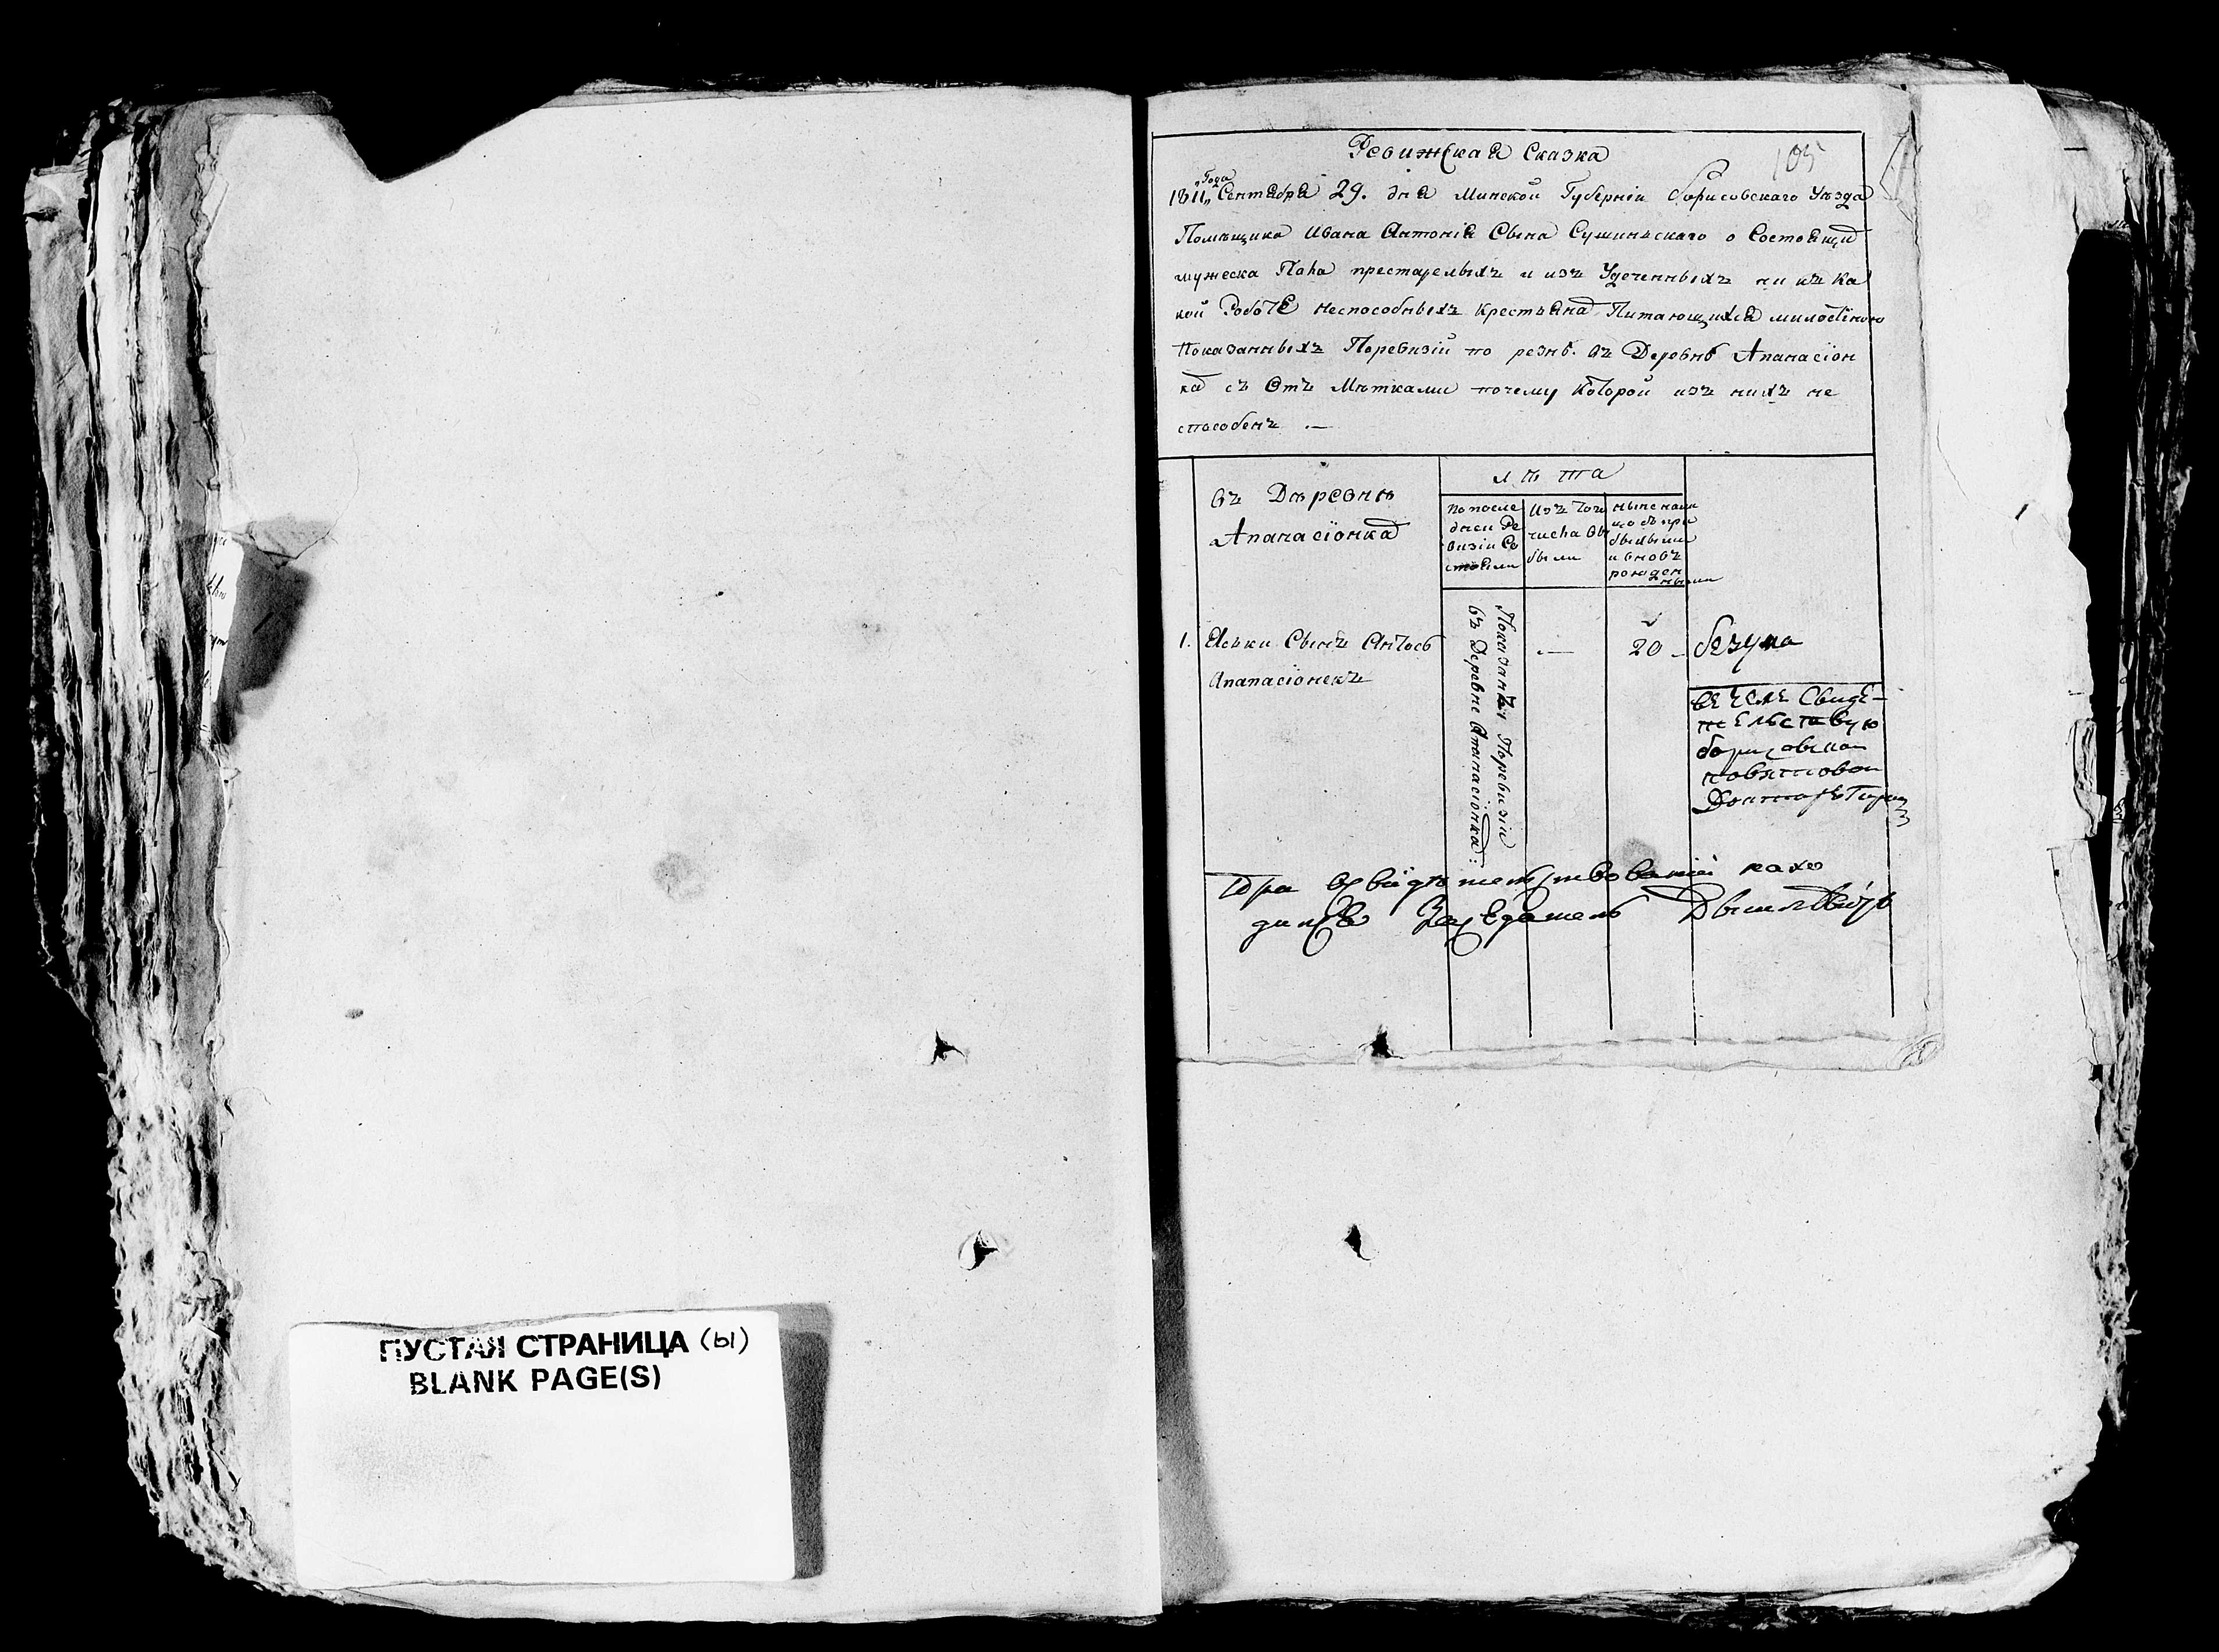 ПУСТАЯ СТРАНИЦА (ы)
BLANK PAGE(S)
Ревижская Сказка
105
1811„ Года Сентября 29. дня Минской Губерніи борисовскаго Уѣзда
Помѣщика Ивана Антонія Сына Сушинскаго о Состоящи
мужеска Пола престарелыхъ и изъ Увеченныхъ ни къ Ка
кой Роботе неспособныхъ крестьяна Питающихся милостїною
Показанныхъ Поревизїи по резнѣ. въ Деревнѣ Апанасїон
ка съ Отъ Мѣтками почему Которой изъ нихъ не
способенъ . —
въ Дѣревнѣ
Апанасїонка
лѣта
по после
дней Ре
визїи Со
стояли
Изъ Того
числа Вы
были
ныне на ли
цо съ при
былыми
и вновъ
рожден
ными
1. Яськи Сынъ Антось
Апанасїонекъ
Показанъ Поревизїи
въ Деревне Апанасїонка:
—
20 –
безума
Свиде-
тельствую
борисовскои
повятовои
Доктор
При освидѣтельствованїи нахо
дился Заседатель